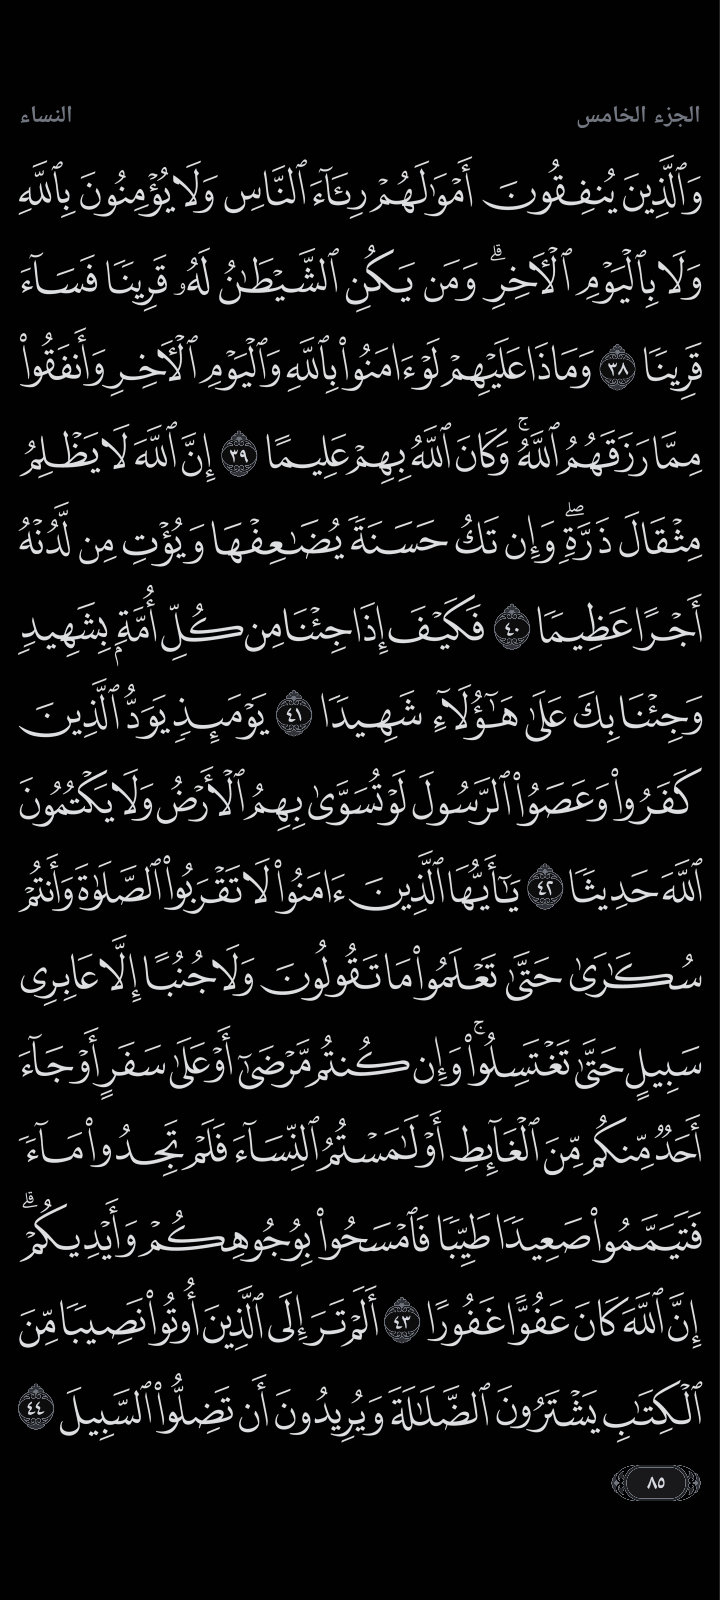 الجزء الخامس
النساء
وَٱلَّذِينَ يُنفِقُونَ أَمۡوَٰلَهُمۡ رِئَآءَ ٱلنَّاسِ وَلَا يُؤۡمِنُونَ بِٱللَّهِ
وَلَا بِٱلۡيَوۡمِ ٱلۡأٓخِرِۗ وَمَن يَكُنِ ٱلشَّيۡطَٰنُ لَهُۥ قَرِينٗا فَسَآءَ
قَرِينٗا ٣٨ وَمَاذَا عَلَيۡهِمۡ لَوۡ ءَامَنُواْ بِٱللَّهِ وَٱلۡيَوۡمِ ٱلۡأٓخِرِ وَأَنفَقُواْ
مِمَّا رَزَقَهُمُ ٱللَّهُۚ وَكَانَ ٱللَّهُ بِهِمۡ عَلِيمًا ٣٩ إِنَّ ٱللَّهَ لَا يَظۡلِمُ
مِثۡقَالَ ذَرَّةٖۖ وَإِن تَكُ حَسَنَةٗ يُضَٰعِفۡهَا وَيُؤۡتِ مِن لَّدُنۡهُ
أَجۡرًا عَظِيمٗا ٤٠ فَكَيۡفَ إِذَا جِئۡنَا مِن كُلِّ أُمَّةِۭ بِشَهِيدٖ
وَجِئۡنَا بِكَ عَلَىٰ هَٰٓؤُلَآءِ شَهِيدٗا ٤١ يَوۡمَئِذٖ يَوَدُّ ٱلَّذِينَ
كَفَرُواْ وَعَصَوُاْ ٱلرَّسُولَ لَوۡ تُسَوَّىٰ بِهِمُ ٱلۡأَرۡضُ وَلَا يَكۡتُمُونَ
ٱللَّهَ حَدِيثٗا ٤٢ يَٰٓأَيُّهَا ٱلَّذِينَ ءَامَنُواْ لَا تَقۡرَبُواْ ٱلصَّلَوٰةَ وَأَنتُمۡ
سُكَٰرَىٰ حَتَّىٰ تَعۡلَمُواْ مَا تَقُولُونَ وَلَا جُنُبًا إِلَّا عَابِرِي
سَبِيلٍ حَتَّىٰ تَغۡتَسِلُواْۚ وَإِن كُنتُم مَّرۡضَىٰٓ أَوۡ عَلَىٰ سَفَرٍ أَوۡ جَآءَ
أَحَدٞ مِّنكُم مِّنَ ٱلۡغَآئِطِ أَوۡ لَٰمَسۡتُمُ ٱلنِّسَآءَ فَلَمۡ تَجِدُواْ مَآءٗ
فَتَيَمَّمُواْ صَعِيدٗا طَيِّبٗا فَٱمۡسَحُواْ بِوُجُوهِكُمۡ وَأَيۡدِيكُمۡۗ
إِنَّ ٱللَّهَ كَانَ عَفُوًّا غَفُورًا ٤٣ أَلَمۡ تَرَ إِلَى ٱلَّذِينَ أُوتُواْ نَصِيبٗا مِّنَ
ٱلۡكِتَٰبِ يَشۡتَرُونَ ٱلضَّلَٰلَةَ وَيُرِيدُونَ أَن تَضِلُّواْ ٱلسَّبِيلَ ٤٤
٨٥